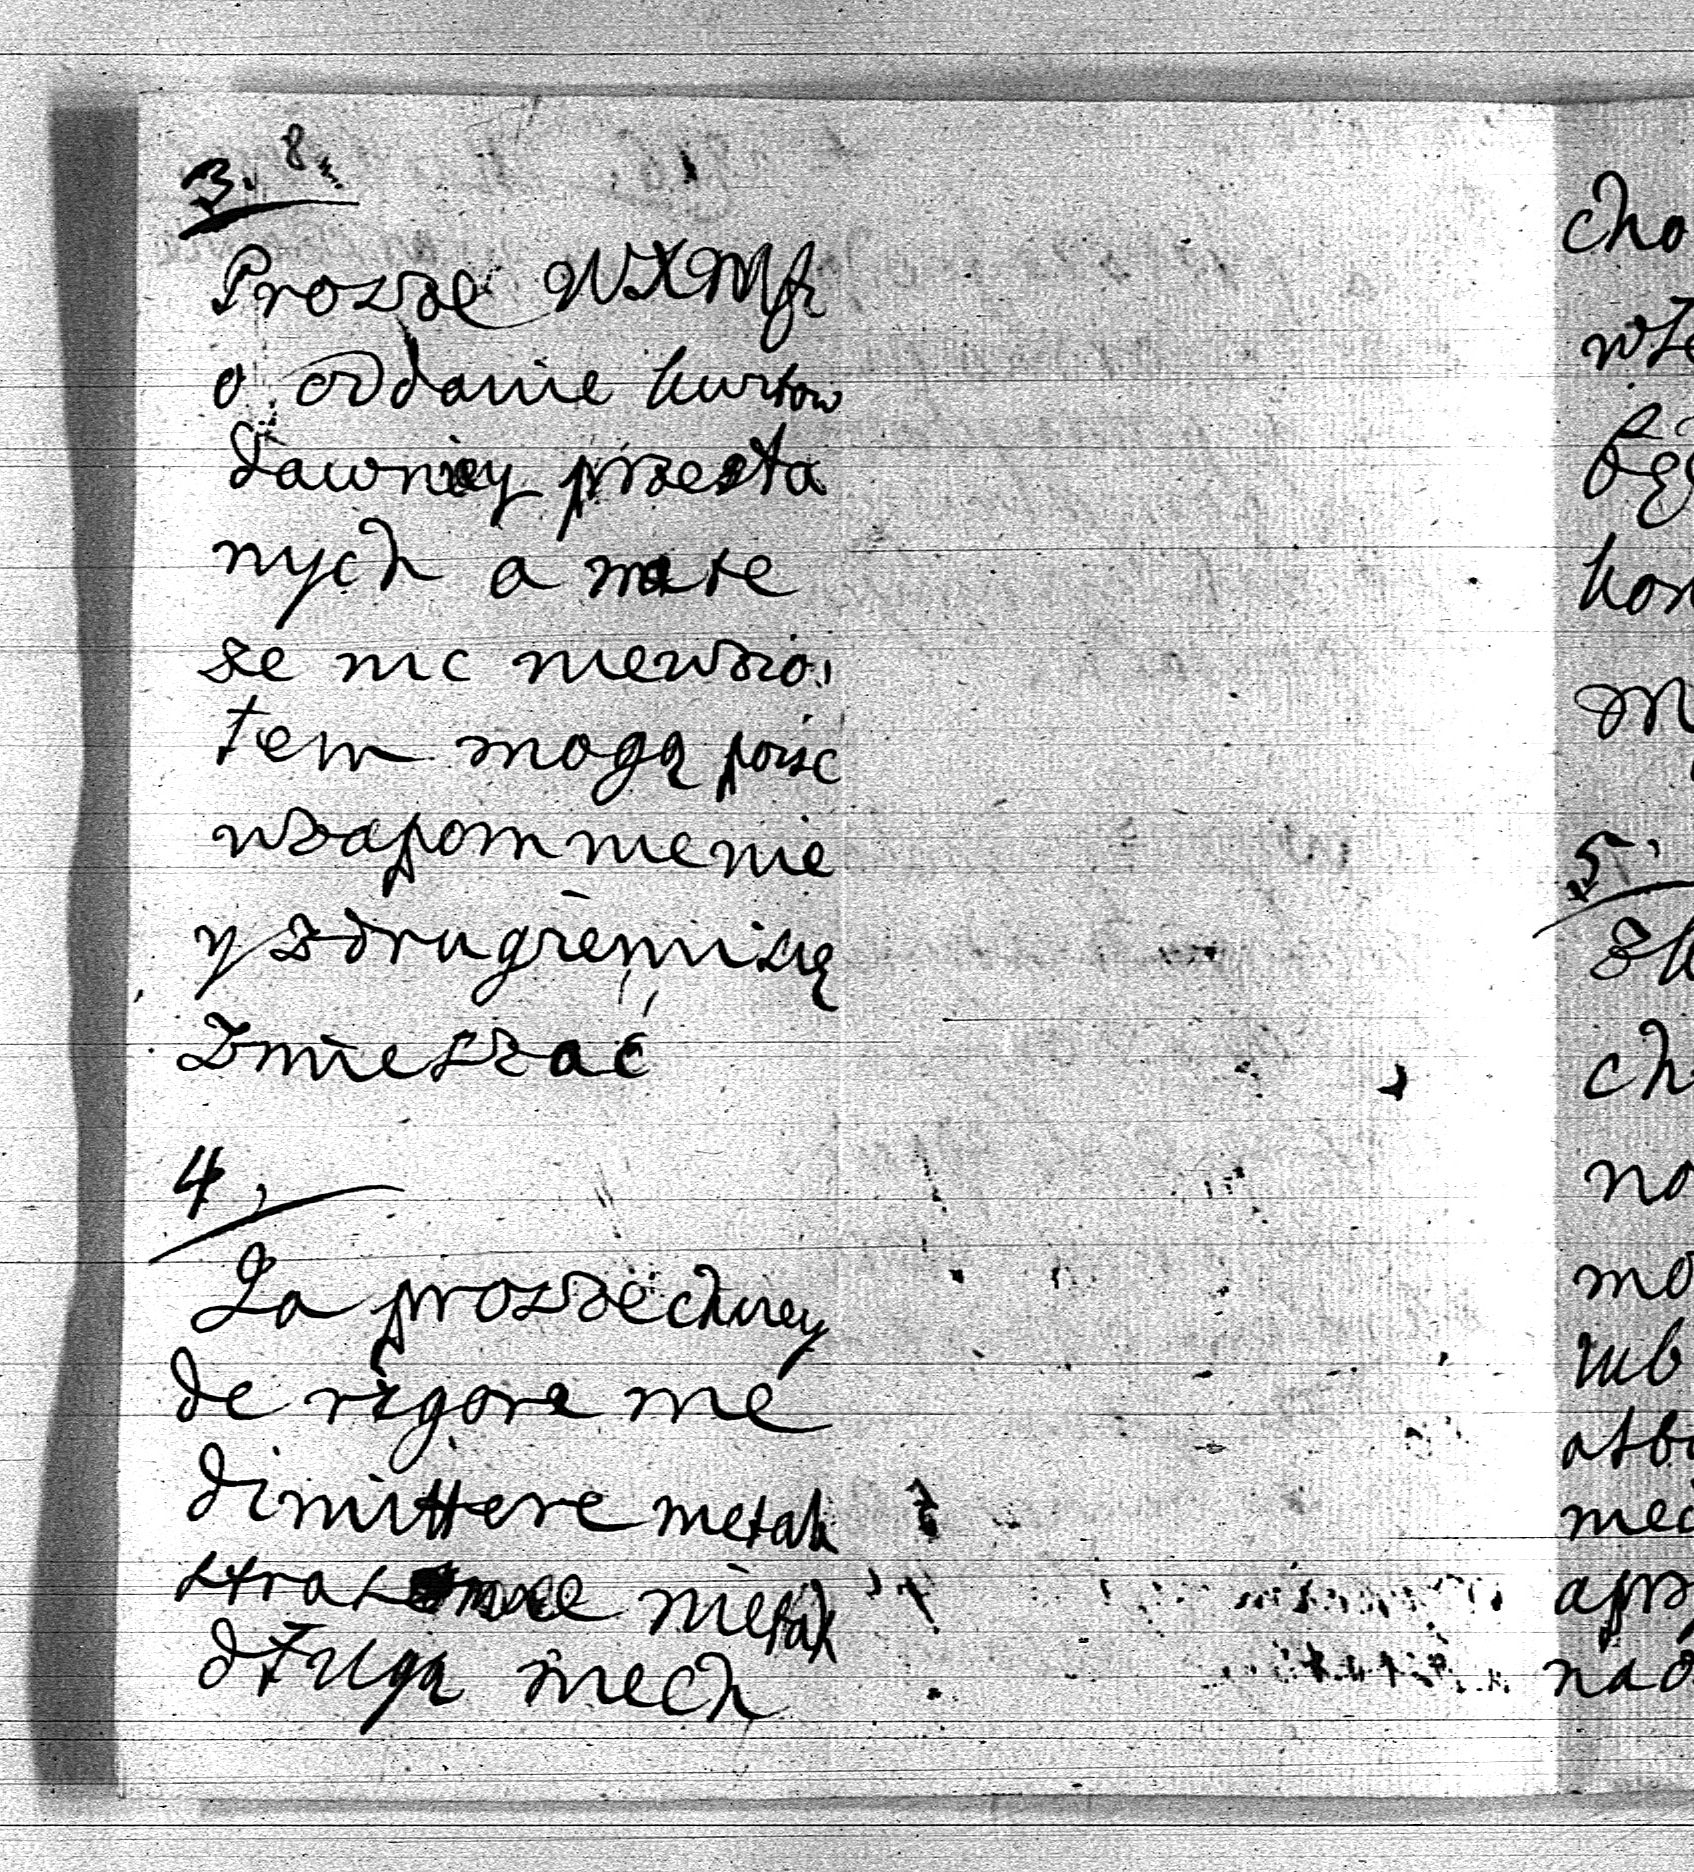 3. 8
Proszę WXMſci
o oddanie kurtow
dawniey przesła
nych a mate
se nic niewzio
łem mogą poisc
wzapomnienie
y zdrugiemi się
zmieszać
4,
Ja proszę chciey
de rigore me
dimittere nietak
straszne nietak
długą niech
cho
wze
kon
5.
ch
no
mo
lub
nad